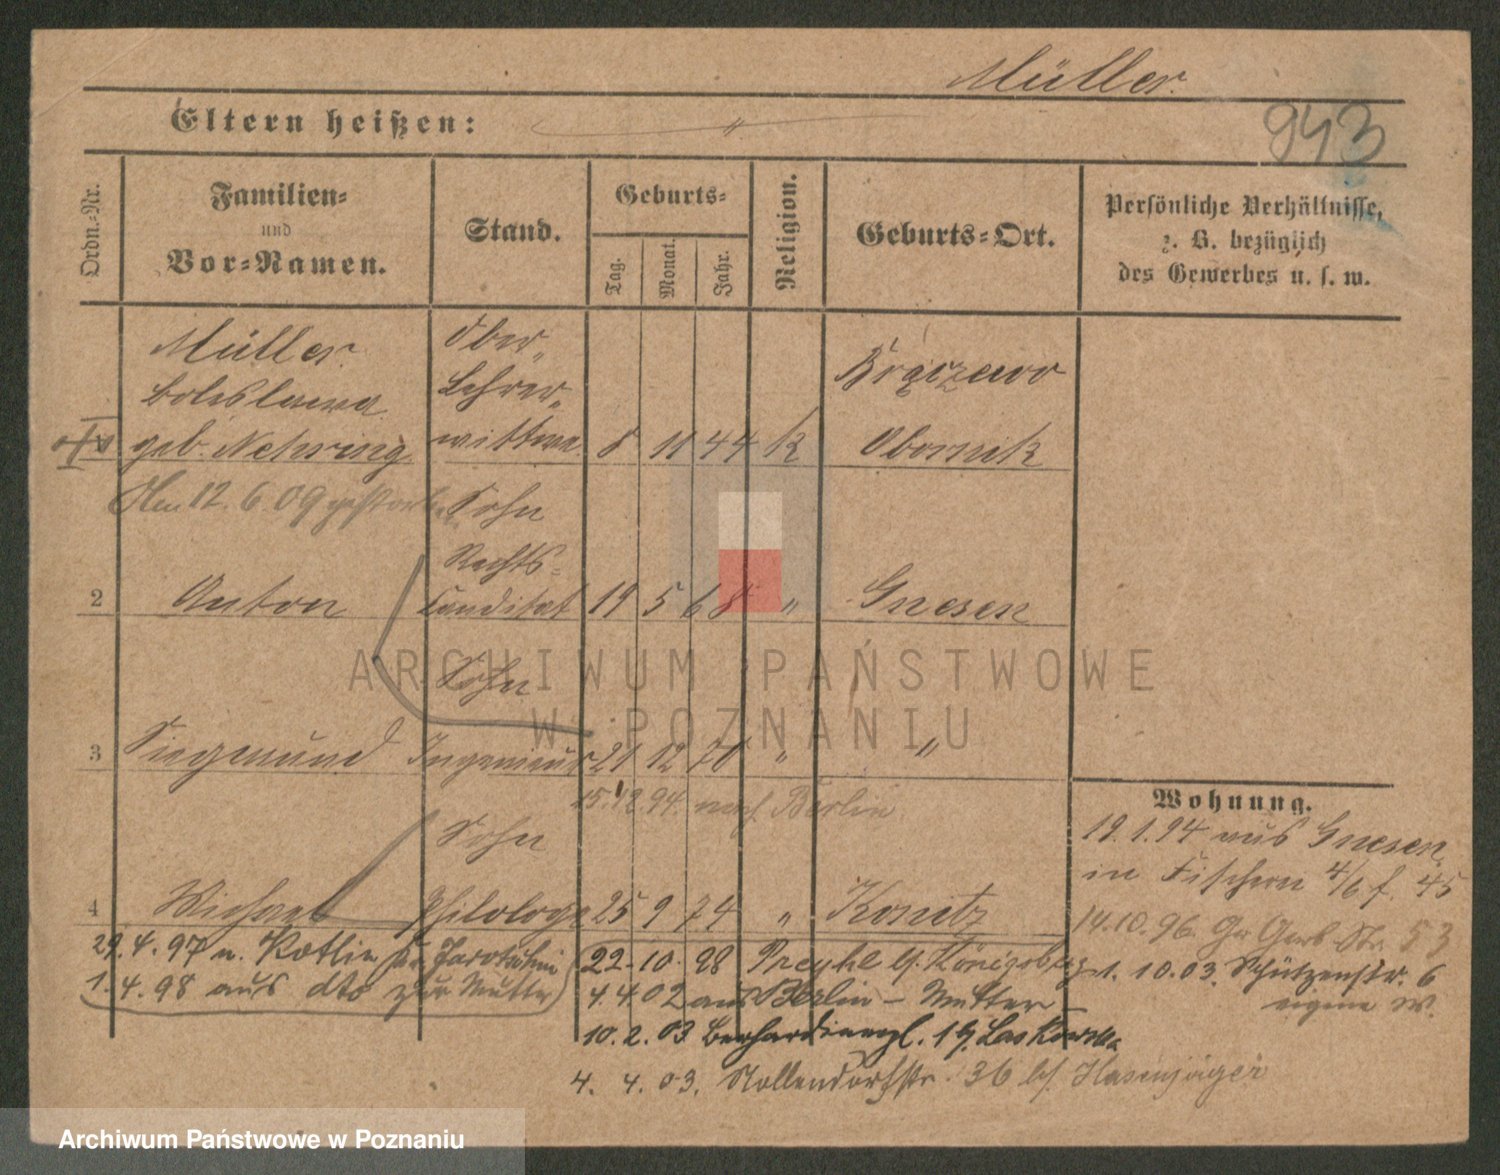 Müller.
943
Eltern heißen:
Ordn.-Nr.
Familien-
und
Vor-Namen.
Stand.
Geburts-
Tag.
Monat.
Jahr.
Religion.
Geburts-Ort.
Persönliche Verhältnisse,
z. B. bezüglich
des Gewerbes u. s. w.
Müller
Boleslawa
geb. Nehring
Ober-
Lehrer-
wittwe
8 11 44 k
Brączewo
Obornik
Den 12.6.09 gestorben
Sohn
Rechts-
2 Anton Canditat 19 5 68 " Gnesen
Sohn
3 Siegmund Ingenieur 21 12 70 " "
15.12.94. nach Berlin
Sohn
4 Michael Philologe 25 9 74 " Konitz
29.4.97 n. Kotlin Jarotschin
1.4.98 aus dto zur Mutter
22.10.98
4.4.02 aus Berlin - Mutter
10.2.03
4. 4. 03. Nollendorfstr. 36 bei Hasenjäger
Wohnung.
19.1.94 aus Gnesen
in Fischerei 4/6 f. 45
14.10.96. Gr Gerb Str. 53
1. 10.03. Schützenstr. 6
eigene W.
ARCHIWUM PAŃSTWOWE
W POZNANIU
Archiwum Państwowe w Poznaniu